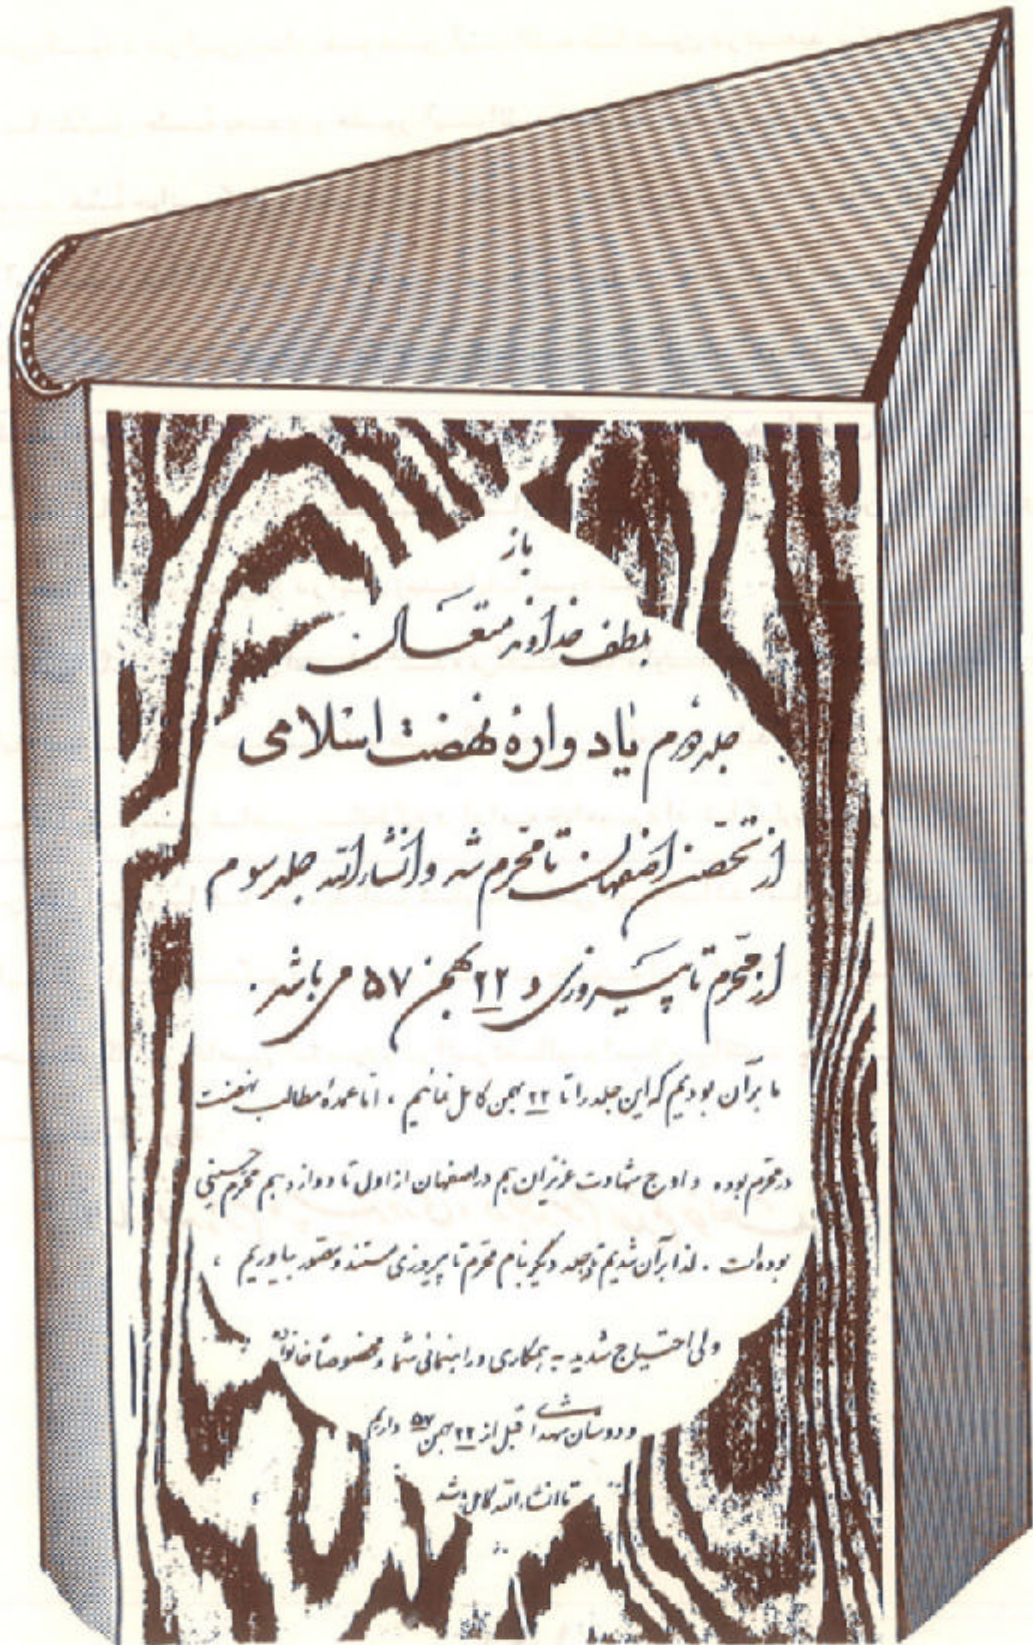 باز
بلطف خداوند متعال
جلد دوم یادواره نهضت اسلامی
از تحصن اصفهان تا محرم شد و انشاءالله جلد سوم
از محرم تا پیروزی در ۲۲ بهمن ۵۷ می باشد.
ما بر آن بودیم که این جلد را تا ۲۲ بهمن کامل نمائیم، اما عمده مطالب نهضت
در محرم بوده و اوج شهادت عزیزان هم در اصفهان از اول تا دوازدهم محرم حسینی
بوده است. لذا بر آن شدیم جلد دیگر بنام محرم تا پیروزی مستند و مصور بیاوریم،
ولی احتیاج شدید به همکاری و راهنمائی شما و مخصوصاً خانواده
و دوستان شهدا قبل از ۲۲ بهمن ۵۷ داریم
تا انشاءالله کامل باشد